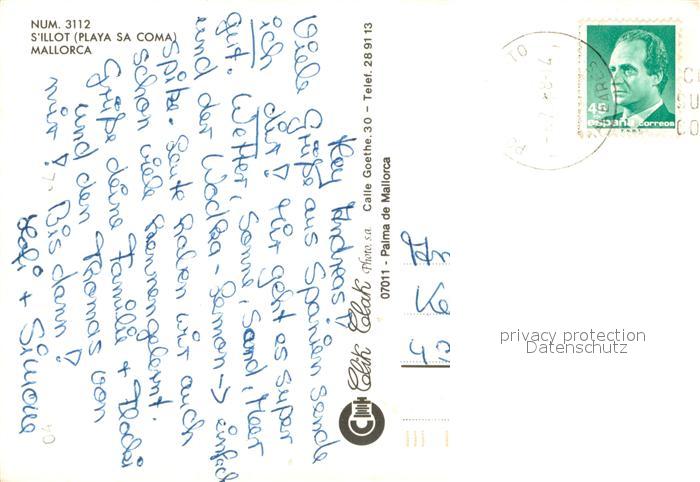 NUM. 3112
S'ILLOT (PLAYA SA COMA)
MALLORCA
Hey Andreas!
Viele Grüße aus Spanien sende
ich dir! Mir geht es super
gut. Wetter, Sonne, Sand, Meer
und der Wodka-Lemon -> einfach
Spitze. Leute haben wir auch
schon viele kennengelernt.
Grüße deine Familie +
und den Thomas von
mir! Bis dann!
+ Simone
Clik Clak Photo s.a. Calle Goethe, 30 – Telef. 28 91 13
07011 - Palma de Mallorca
TO
45
España correos
F.N.M.T.
privacy protection
Datenschutz